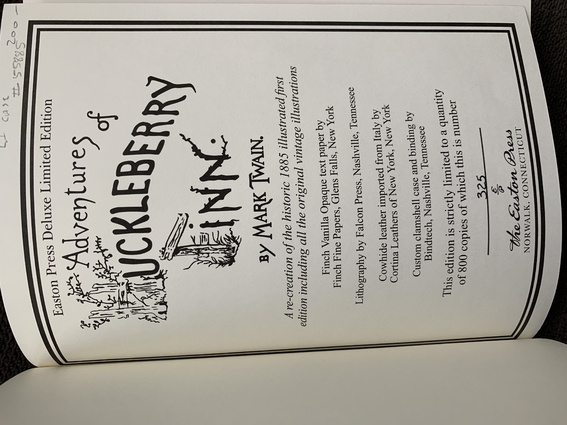 Easton Press Deluxe Limited Edition
Adventures of
HUCKLEBERRY
FINN.
BY MARK TWAIN.
A re-creation of the historic 1885 illustrated first
edition including all the original vintage illustrations
Finch Vanilla Opaque text paper by
Finch Fine Papers, Glens Falls, New York
Lithography by Falcon Press, Nashville, Tennessee
Cowhide leather imported from Italy by
Cortina Leathers of New York, New York
Custom clamshell case and binding by
Bindtech, Nashville, Tennessee
This edition is strictly limited to a quantity
of 800 copies of which this is number
325
The Easton Press
NORWALK, CONNECTICUT